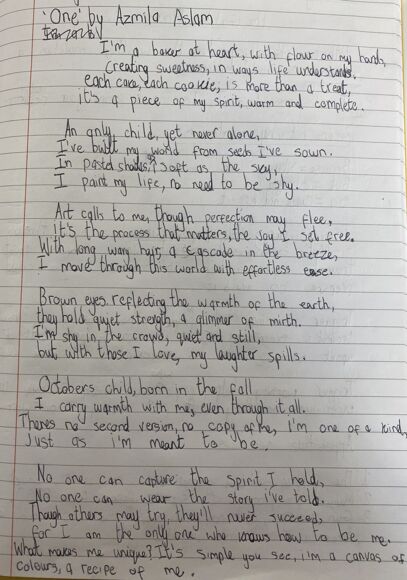 'One' by Azmila Aslam
I'm a baker at heart, with flour on my hands,
Creating sweetness, in ways life understands.
each cake, each cookie, is more than a treat,
it's a piece of my spirit, warm and complete.
An only child, yet never alone,
I've built my world from seeds I've sown.
In pastel shades, soft as the sky,
I paint my life, no need to be shy.
Art calls to me, though perfection may flee,
It's the process that matters, the joy I set free.
With long wavy hair, a cascade in the breeze,
I move through this world with effortless ease.
Brown eyes reflecting the warmth of the earth,
they hold quiet strength, a glimmer of mirth.
I'm shy in the crowd, quiet and still,
but with those I love, my laughter spills.
Octobers child, born in the fall
I carry warmth with me, even through it all.
Theres no second version, no copy of me, I'm one of a kind,
Just as i'm meant to be.
No one can capture the spirit I hold,
No one can wear the story I've told.
Though others may try, they'll never succeed,
for I am the only one who knows how to be me.
What makes me unique? It's simple you see, i'm a canvas of
colours, a recipe of me.